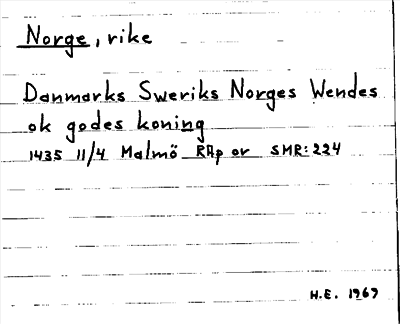 Norge, rike
Danmarks Sweriks Norges Wendes
ok godes koning
1435 11/4 Malmö RAp or SMR:224
H.E. 1969